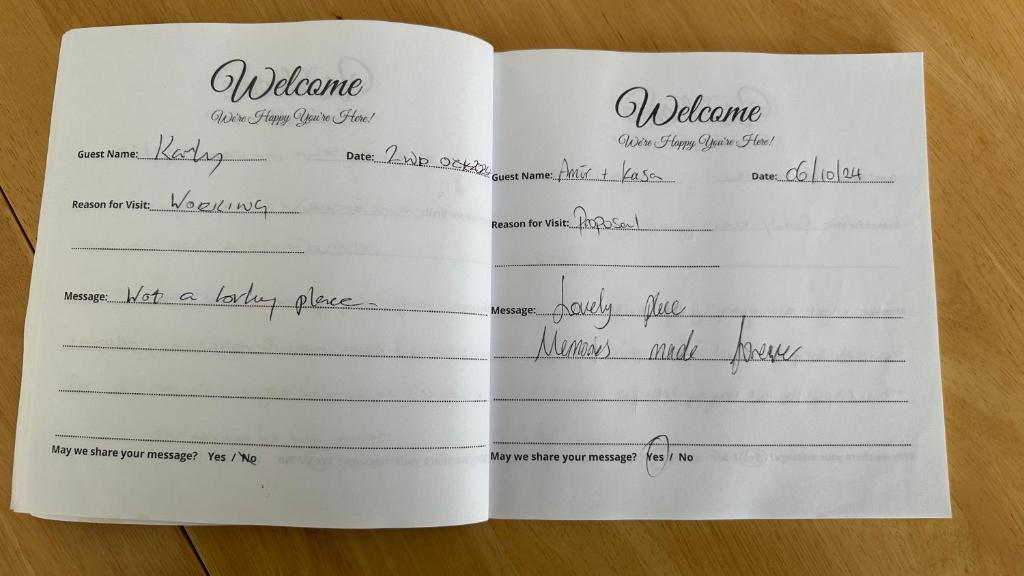 Welcome
We're Happy You're Here!
Guest Name: Karly Date: 2ND Oct 2024
Reason for Visit: WORKING
Message: Wot a lovley place
May we share your message? Yes / No
Welcome
We're Happy You're Here!
Guest Name: Amir + Kasa Date: 06/10/24
Reason for Visit: Proposal
Message: Lovely place
Memories made forever
May we share your message? Yes / No